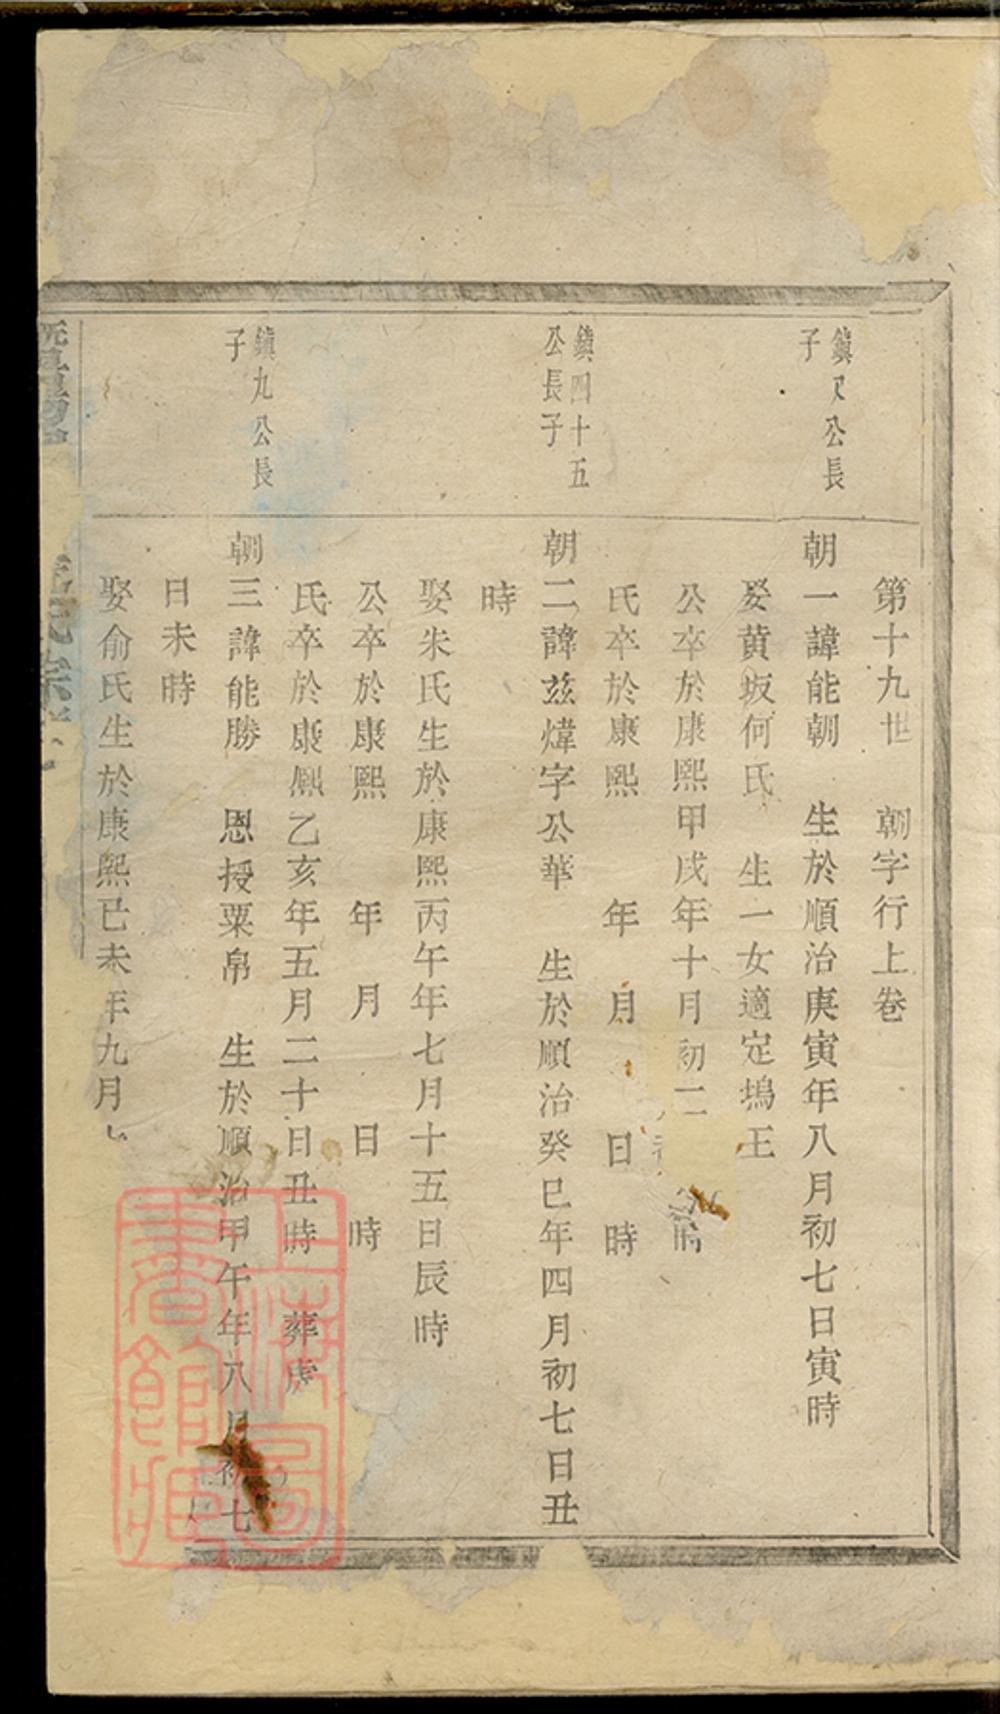 第十九世　朝字行上卷
鎮又公長
子
朝一諱能朝　生於順治庚寅年八月初七日寅時
娶黄坂何氏　生一女適定塢王
公卒於康熙甲戌年十月初二　時
氏卒於康熙　年　月　日　時
鎮四十五
公長子
朝二諱茲煒字公華　生於順治癸巳年四月初七日丑
時
娶朱氏生於康熙丙午年七月十五日辰時
公卒於康熙　年　月　日　時
氏卒於康熙乙亥年五月二十日丑時　葬
鎮九公長
子
朝三諱能勝　恩授粟帛　生於順治甲午年八月初七
日未時
娶俞氏生於康熙己未年九月
氏宗
上海圖書館藏